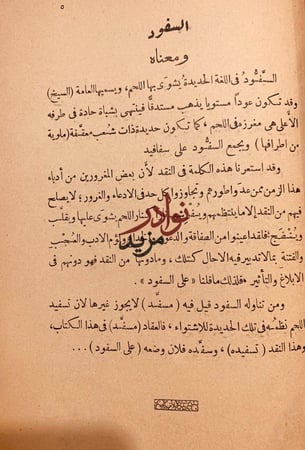 ٥
السفود
ومعناه
السَّفُّودُ فى اللغة الحديدة يُشوَى بها اللحم، ويسميها العامة (السيخ)
وقد تكون عوداً مستويا يذهب مستدقًا فينتهى بشباة حادة فى طرفه
الأعلى هى مغرزه فى اللحم، كما تكون حديدة ذات شعب معقفة (ملوية
من اطرافها) ويجمع السفود على سفافيد
وقد استعرنا هذه الكلمة فى النقد لأن بعض المغرورين من أدباء
هذا الزمن ممن عدوا طورهم وتجاوزوا كل حد فى الادعاء والغرور، لا يصلح
فيهم من النقد إلا ما ينتظمهم ويسفـ النار اللحم يُشوَى عليها ويقلب
ويُنْضَج، فلقد اعيتوا من الصفاقة والدعوى الادب والمُعْجَب
والفتنة بما لا تدبير فيه الا حال كتلك، وما دونها من النقد فهو دونهم فى
الابلاغ والتأثير، فلذلك ما قلنا «على السفود»
ومن تناوله السفود قيل فيه (مسفَّد) لايجوز غيرها لان تسفيد
اللحم نظمه فى تلك الحديدة للاشتواء، فالعقاد (مسفَّد) فى هذا الكتاب،
وهذا النقد (تسفيده)، وسفَّده فلان وضعه (على السفود) ...
نوادر
مزيد